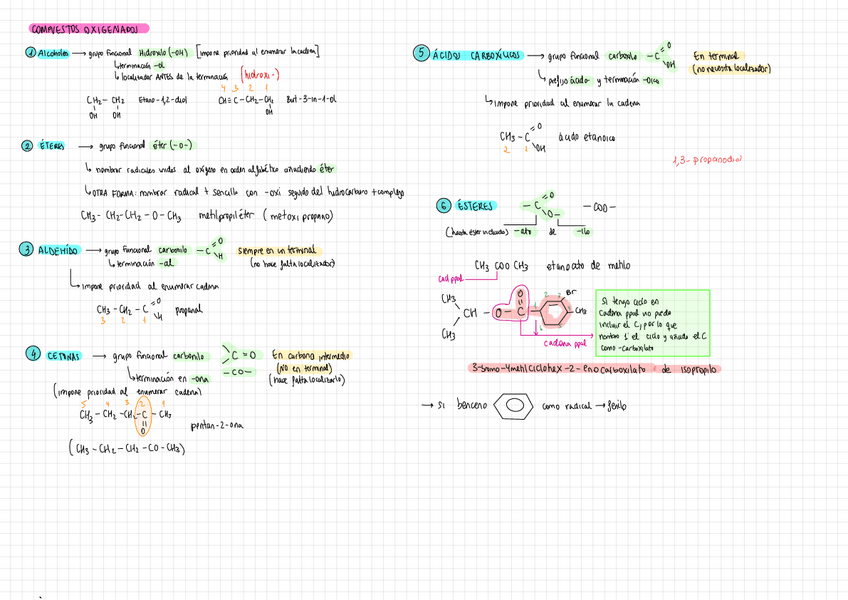 COMPUESTOS OXIGENADOS
① Alcoholes → grupo funcional Hidroxilo (-OH) [impone prioridad al enumerar la cadena]
↳ terminación -ol
↳ localizador ANTES de la terminación (hidroxi-)
4 3 2 1
CH2 - CH2 Etano-1,2-diol CH ≡ C - CH2 - CH2 But-3-in-1-ol
OH OH OH
② ÉTERES → grupo funcional éter (-O-)
↳ nombrar radicales unidos al oxígeno en orden alfabético añadiendo éter
↳ OTRA FORMA: nombrar radical + sencillo con -oxi seguido del hidrocarburo + complejo
CH3 - CH2 - CH2 - O - CH3 metilpropiléter (metoxi propano)
③ ALDEHÍDO → grupo funcional carbonilo -C=O H siempre en un terminal
↳ terminación -al (no hace falta localizador)
↳ impone prioridad al enumerar cadena
CH3 - CH2 - C=O H propanal
3 2 1
④ CETONAS → grupo funcional carbonilo C=O En carbono intermedio
-CO- (NO en terminal)
↳ terminación en -ona (hace falta localizarlo)
(impone prioridad al enumerar cadena)
5 4 3 2 1
CH3 - CH2 - CH2 - C - CH3
O pentan-2-ona
(CH3 - CH2 - CH2 - CO - CH3)
⑤ ÁCIDOS CARBOXÍLICOS → grupo funcional carbonilo -C=O OH En terminal
(no necesita localizador)
↳ prefijo ácido y terminación -oico
↳ impone prioridad al enumerar la cadena
CH3 - C=O OH ácido etanoico
2 1
1,3-propanodial
⑥ ÉSTERES -C=O O- -COO-
-ato de -ilo
CH3 COO CH3 etanoato de metilo
cad ppal
CH3 O Br
CH - O - C CH3
CH3
cadena ppal
Si tengo ciclo en
Cadena ppal no puedo
incluir el C, por lo que
nombro 1º el ciclo y añado el C
como -carboxilato
3-bromo-4metilciclohex-2-enocarboxilato de isopropilo
→ si benceno como radical → fenilo